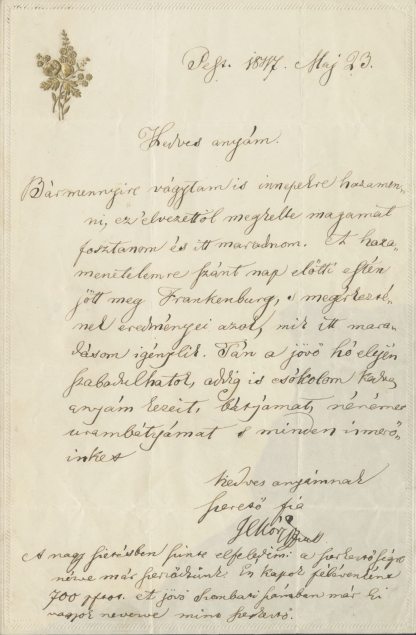 Pest. 1847. Maj 23.
Kedves anyám.
Bármennyire vágytam is innepekre hazamen-
ni, ez élvezettől meg kelle magamat
fosztanom és itt maradnom. A haza
menetelemre szánt nap előtti estén
jött meg Frankenburg, s megérkezésé-
nek eredményei azok, mik itt mara-
dásom igénylik. Tán a jövő hó elején
szabadulhatok, addig is csókolom kedves
anyám kezeit, bátyámat, nénémet
urambátyámat s minden ismerő-
inket
kedves anyámnak
szerető fia
JKóri
A nagy sietésben szinte elfeledém a szerkesztőségre
nézve már szerződtünk. Én kapok félévenként
700 pfrtot. A jövő szombati számban már ki
vagyok nevezve mint szerkesztő.